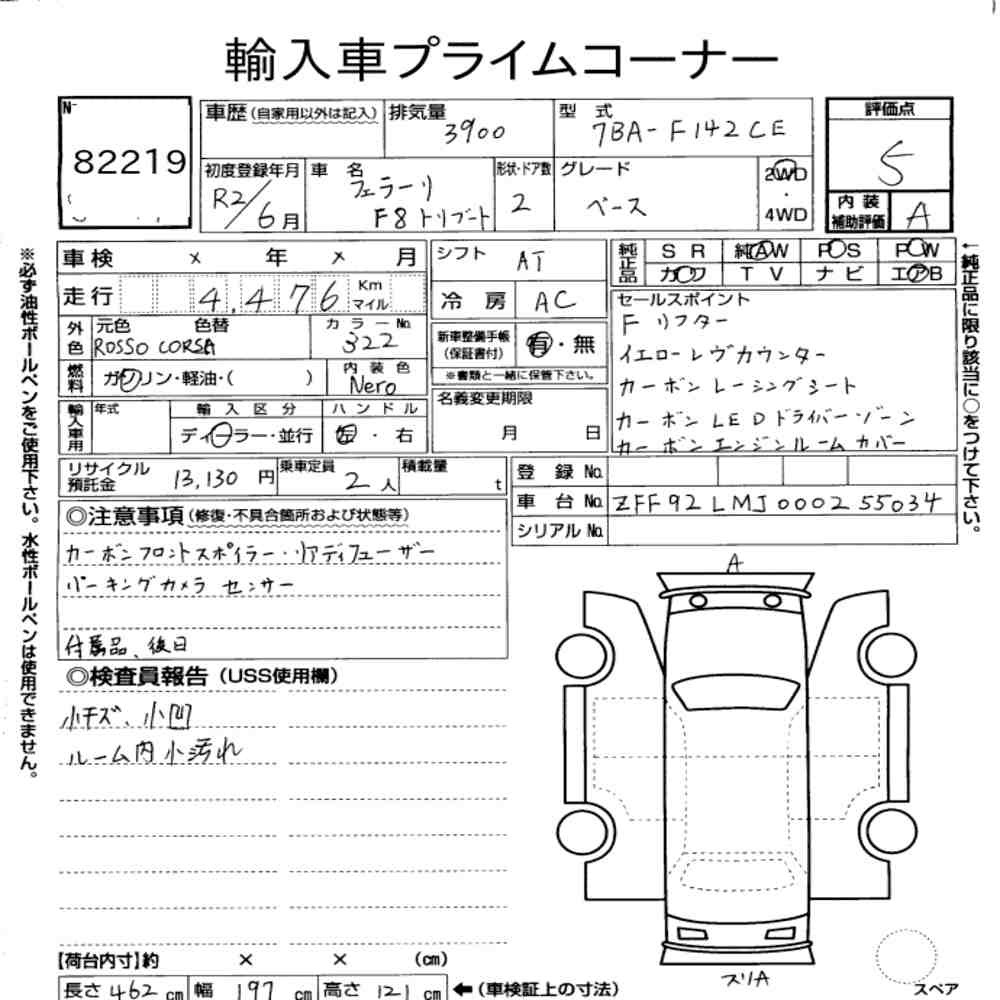 輸入車プライムコーナー
N-
82219
車歴(自家用以外は記入) 排気量 3900 型式 7BA-F142CE
評価点 5
内装補助評価 A
初度登録年月 R2/6月 車名 フェラーリ F8トリブート 形状・ドア数 2 グレード ベース 2WD・4WD
車検 × 年 × 月
走行 4,476 Km マイル
外色 元色 色替 ROSSO CORSA カラーNo. 322
燃料 ガソリン・軽油・( ) 内装色 Nero
輸入車用 年式 輸入区分 ディーラー・並行 ハンドル 左・右
シフト AT
冷房 AC
新車整備手帳(保証書付) 有・無
※書類と一緒に保管下さい。
名義変更期限
月 日
純正品 SR 純AW PS PW
カワ TV ナビ エアB
セールスポイント
Fリフター
イエローレヴカウンター
カーボンレーシングシート
カーボンLEDドライバーゾーン
カーボンエンジンルームカバー
リサイクル預託金 13,130円 乗車定員 2人 積載量 t
登録No.
車台No. ZFF92LMJ000255034
シリアルNo.
◎注意事項(修復・不具合箇所および状態等)
カーボンフロントスポイラー・リアディフューザー
パーキングカメラ センサー
付属品、後日
◎検査員報告(USS使用欄)
小キズ、小凹
ルーム内小汚れ
A
スリA
スペア
【荷台内寸】約 × × (cm)
長さ 462 cm 幅 197 cm 高さ 121 cm ←(車検証上の寸法)
※必ず油性ボールペンをご使用下さい。水性ボールペンは使用できません。
←純正品に限り該当に○をつけて下さい。